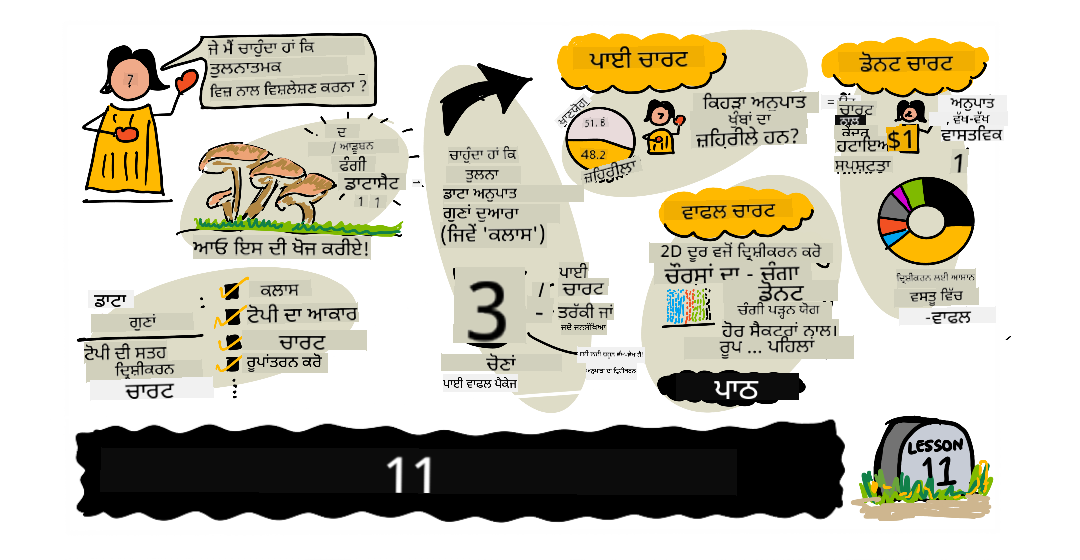 ਜੇ ਮੈਂ ਚਾਹੁੰਦਾ ਹਾਂ ਕਿ
ਤੁਲਨਾਤਮਕ
ਵਿਜ਼ ਨਾਲ ਵਿਸ਼ਲੇਸ਼ਣ ਕਰਨਾ ?
ਦ
/ ਆਡੂਬਨ
ਫੰਗੀ
ਡਾਟਾਸੈਟ
1 1
ਆਓ ਇਸ ਦੀ ਖੋਜ ਕਰੀਏ!
ਡਾਟਾ
ਗੁਣਾਂ
ਟੋਪੀ ਦੀ ਸਤਹ
ਦ੍ਰਿਸ਼ੀਕਰਨ
ਚਾਰਟ
ਕਲਾਸ
ਟੋਪੀ ਦਾ ਆਕਾਰ
ਚਾਰਟ
ਰੂਪਾਂਤਰਨ ਕਰੋ
ਚਾਹੁੰਦਾ ਹਾਂ ਕਿ
ਤੁਲਨਾ
ਡਾਟਾ ਅਨੁਪਾਤ
ਗੁਣਾਂ ਦੁਆਰਾ
(ਜਿਵੇਂ 'ਕਲਾਸ')
3
/ ਪਾਈ
ਚਾਰਟ
- ਤਰੱਕੀ ਜਾਂ
ਚੋਣਾਂ
ਪਾਈ ਵਾਫਲ ਪੈਕੇਜ
ਪਾਈ ਚਾਰਟ
51.8
48.2
ਜ਼ਹਿਰੀਲਾ
ਕਿਹੜਾ ਅਨੁਪਾਤ
ਖੁੰਬਾਂ ਦਾ
ਜ਼ਹਿਰੀਲੇ ਹਨ?
ਵਾਫਲ ਚਾਰਟ
2D ਦੂਰ ਵਜੋਂ ਦ੍ਰਿਸ਼ੀਕਰਨ ਕਰੋ
ਚੌਰਸਾਂ ਦਾ - ਚੰਗਾ
ਡੋਨਟ
ਚੰਗੀ ਪੜ੍ਹਨ ਯੋਗ
ਹੋਰ ਸੈਕਟਰਾਂ ਨਾਲ।
ਰੂਪ ... ਪਹਿਲਾਂ
ਪਾਠ
ਡੋਨਟ ਚਾਰਟ
ਚਾਰਟ
ਨਾਲ
ਕੇਂਦਰ
ਹਟਾਇਆ
ਸਪਸ਼ਟਤਾ
$1
ਅਨੁਪਾਤ
, ਵੱਖ-ਵੱਖ
ਵਾਸਤਵਿਕ
1
ਦ੍ਰਿਸ਼ੀਕਰਨ ਲਈ ਆਸਾਨ
ਵਸਤੂ ਵਿੱਚ
-ਵਾਫਲ
11
LESSON
11